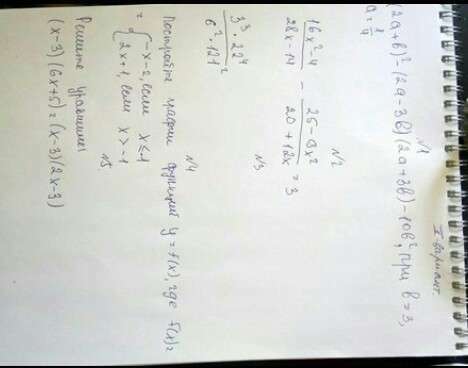 I вариант.
№1
(2а+в)² - (2а-3в)(2а+3в) - 10в², при в=3,
а=
№2
16х²-4 / 28х-14 - 25-9х² / 20+12х = 3
№3
3³·22⁴ / 6²·121²
№4
Постройте график функций y=f(x), где f(x)=
= { -х-2, если х≤-1
2х+1, если х>-1
№5.
Решите уравнение
(х-3)(6х+5)=(х-3)(2х-3)